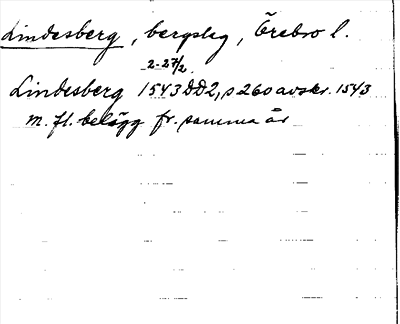 Lindesberg, bergslag, Örebro l.
2-27/2.
Lindesberg 1543 DD2, s 260 avskr. 1543
m. fl. belägg fr. samma år